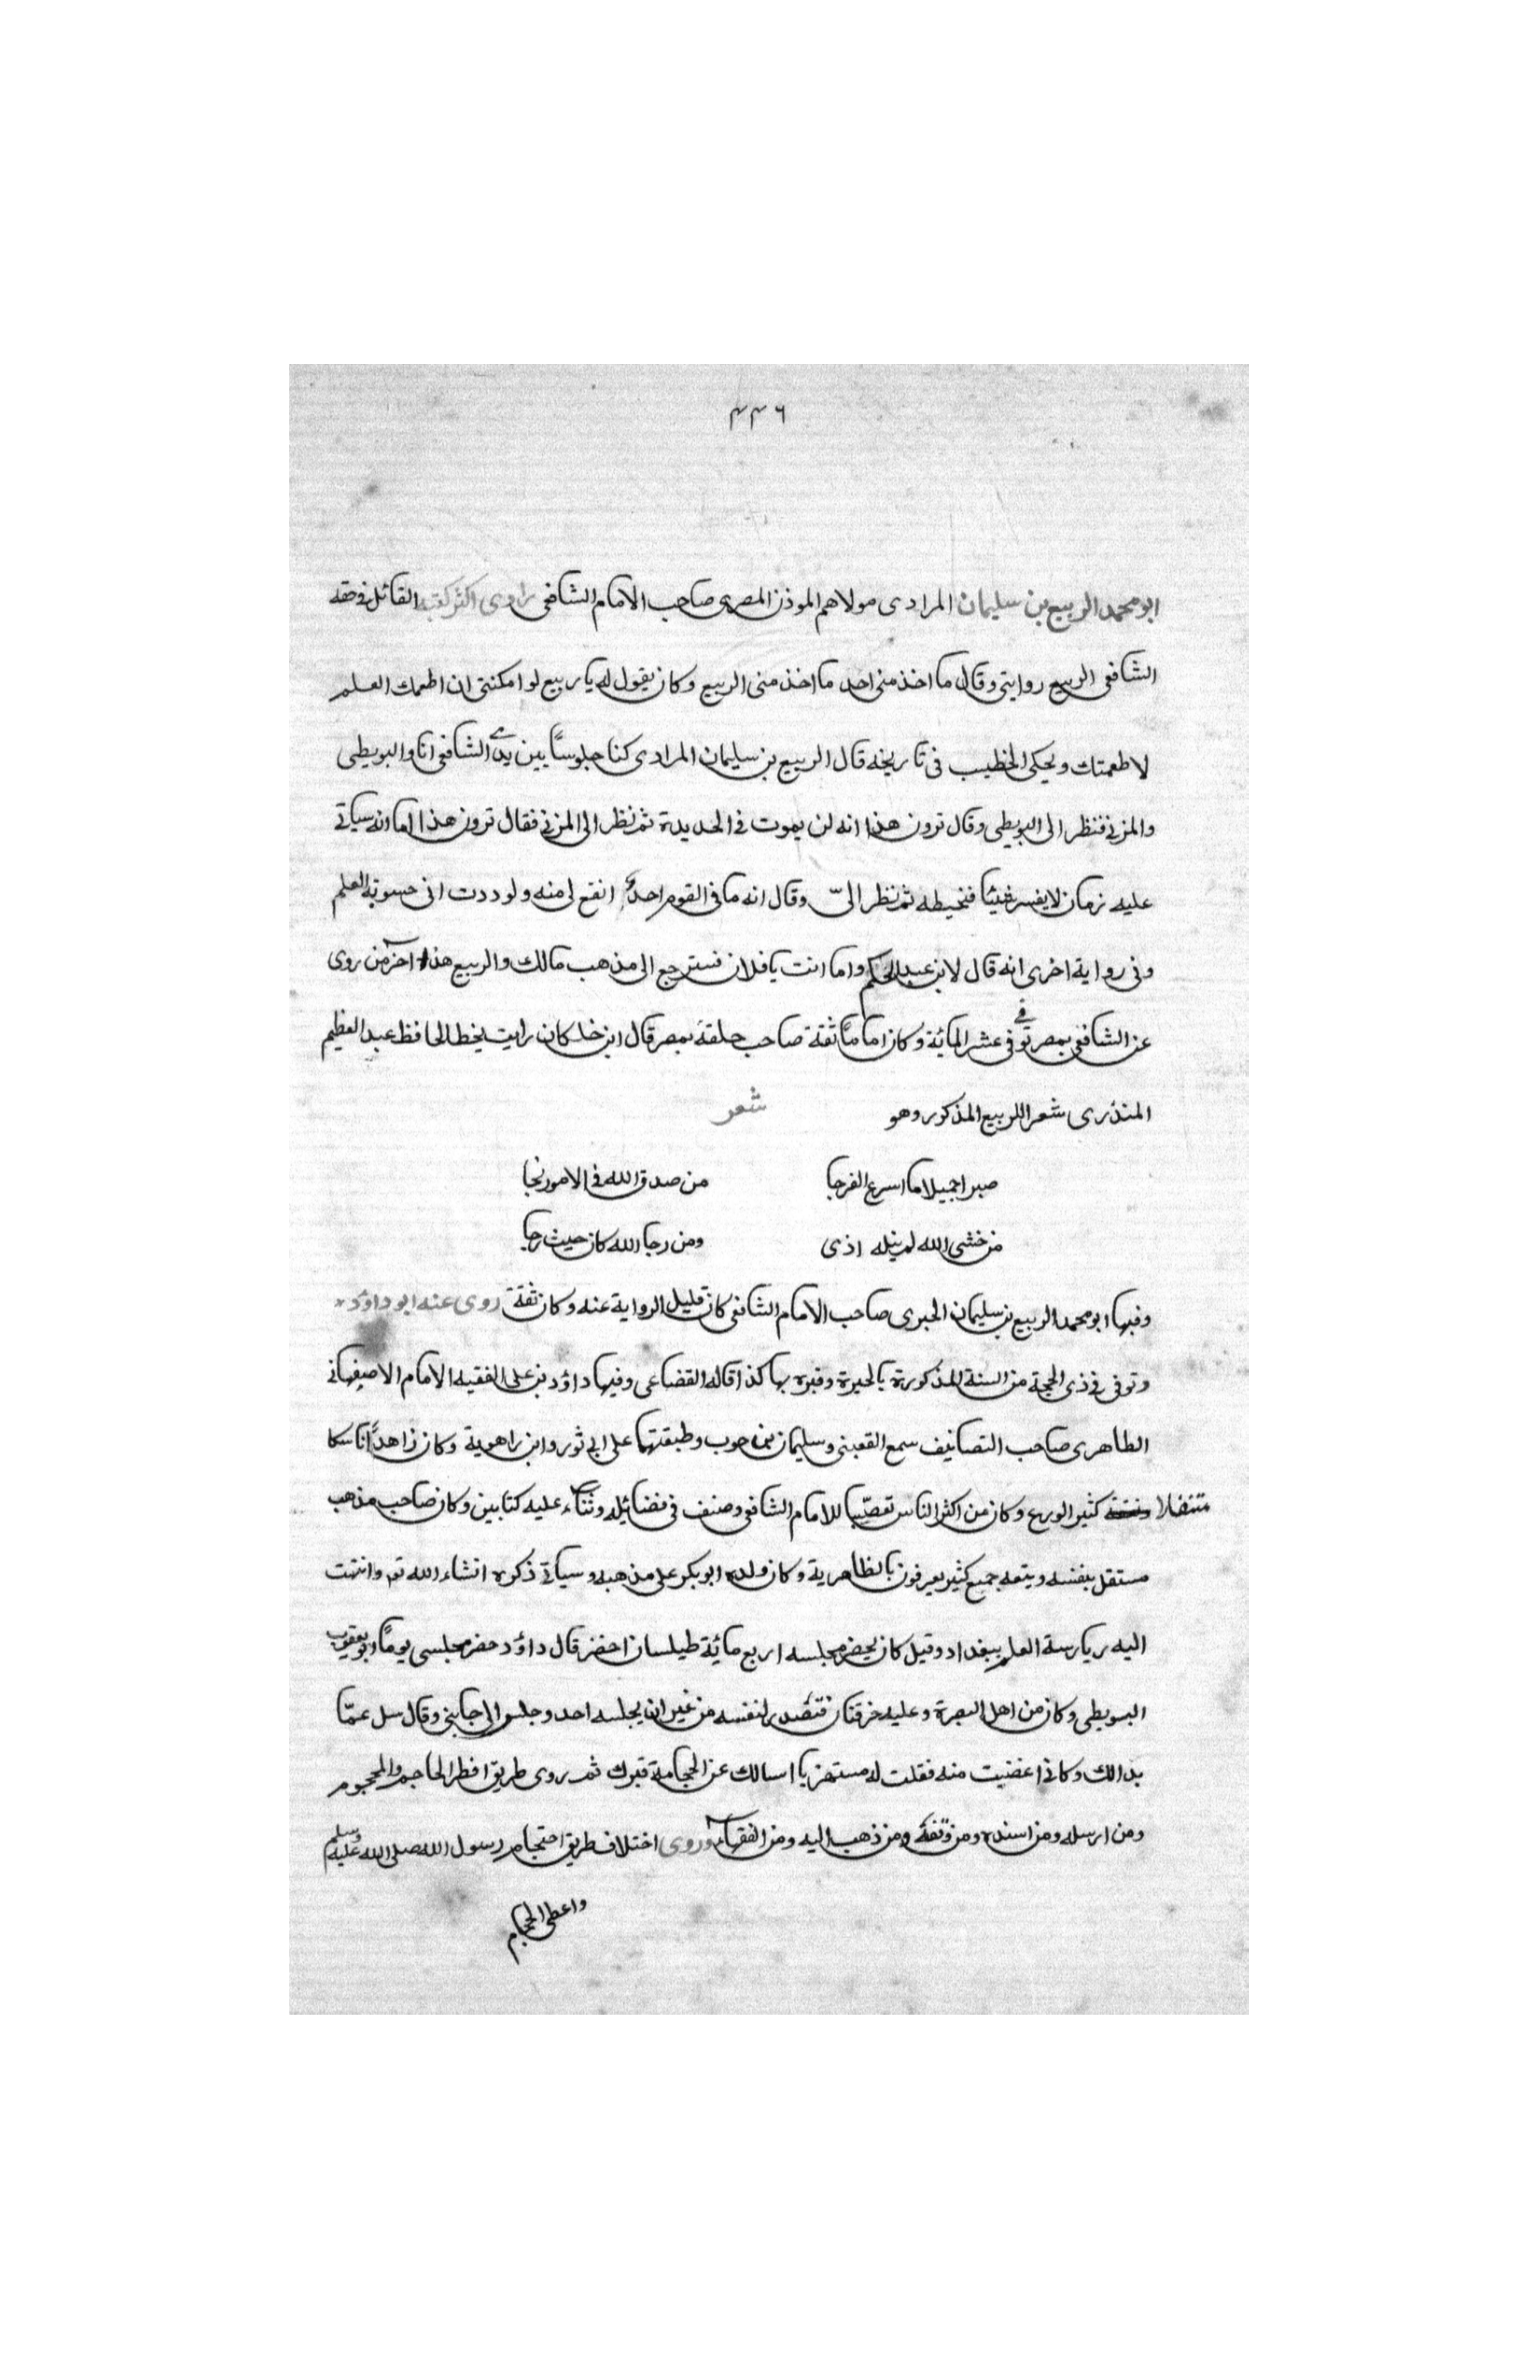 ٤٤٦
ابو محمد الربيع بن سليمان المرادى مولاهم الموذن المصرى صاحب الامام الشافعى راوى اكثر كتبه القائل فى حقه
الشافعى الربيع روايتى وقال ما اخذ منى احد ما اخذ منى الربيع وكان يقول له يا ربيع لو امكنتى ان اطعمك العلم
لاطعمتك ويحكى الخطيب فى تاريخه قال الربيع بن سليمان المرادى كنا جلوسًا بين يدى الشافعى انا والبويطى
والمزنى فنظر الى البويطى وقال ترون هذا انه لن يموت فى الحديدة ثم نظر الى المزنى فقال ترون هذا اما انه سياتى
عليه زمان لا يفسر شيئا فيخيطه ثم نظر الىّ وقال انه ما فى القوم احد انفع لى منه ولوددت انى حسوته العلم
وفى رواية اخرى انه قال لابن عبد الحكم واما انت يا فلان فسترجع الى مذهب مالك والربيع هذا آخر من روى
عن الشافعى بمصر توفى فى عشر المائة وكان اماماً ثقة صاحب حلقة بمصر قال ابن خلكان رايت بخط الحافظ عبد العظيم
المنذرى شعرا للربيع المذكور وهو شعر
صبرا جميلا ما اسرع الفرجا من صدق الله فى الامور نجا
من خشى الله لم ينله اذى ومن رجا الله كان حيث رجا
وفيها ابو محمد الربيع بن سليمان الجيزى صاحب الامام الشافعى كان قليل الرواية عنه وكان ثقة روى عنه ابو داؤد
وتوفى فى ذى الحجة من السنة المذكورة بالجيزة وقبره بها كذا قاله القضاعى وفيها داؤد بن على الفقيه الامام الاصبهانى
الظاهرى صاحب التصانيف سمع القعبنى وسليمان بن حرب وطبقتهما على ابى ثور وابن راهوية وكان زاهدًا ناسكا
كثير الورع وكان من اكثر الناس تعصّبا للامام الشافعى وصنف فى فضائله وثناء عليه كتابين وكان صاحب مذهب
مستقل بنفسه ويتعه جميع كثير يعرفون بالظاهرية وكان ولده ابو بكر على مذهبه وسياتى ذكره انشاء الله تعـ وانتهت
اليه رياسة العلم ببغداد وقيل كان يحضر مجلسه اربع مائة طيلسان اخضر قال داؤد حضر مجلسى يومًا ابو يعقوب
البويطى وكان من اهل البصرة وعليه خرقتان فتصدر لنفسه من غير ان يجلسه احد وجلس الى جانبى وقال سل عمّا
بدالك وكانى اغضبت منه فقلت له مستهزيا اسالك عن الحجامة فبرك ثم روى طريق افطر الحاجم والمحجوم
ومن ارسله ومن اسنده ومن وقفه ومن ذهب اليه ومن الفقهاء وروى اختلاف طريق احتجام رسول الله صلى الله عليه وسلم
واعطى الحجام